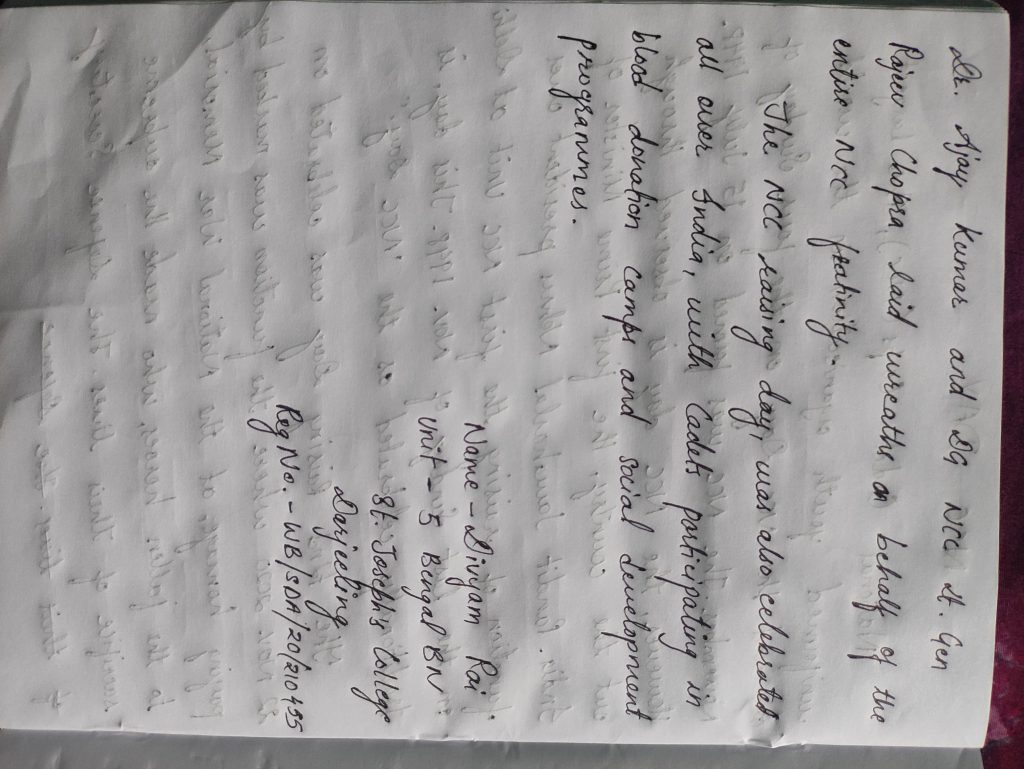 Dr. Ajay Kumar and DG NCC Lt. Gen
Rajeev Chopra laid wreaths on behalf of the
entire NCC fratinity.
The NCC raising day, was also celebrated
all over India, with Cadets participating in
blood donation camps and social development
programmes.
Name - Diviyam Rai
Unit - 5 Bengal BN
St. Joseph's College
Darjeeling
Reg No. - WB/SDA/20/210435